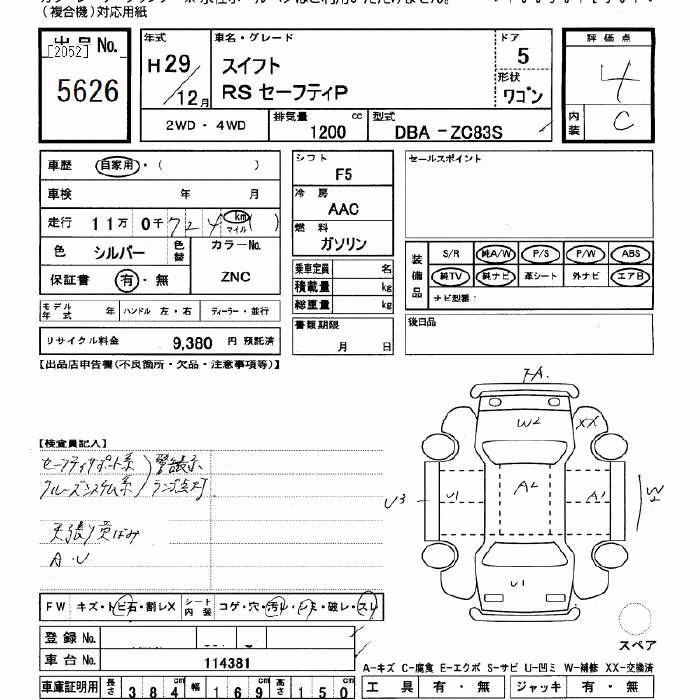 (複合機)対応用紙
出品No.
[2052]
5626
年式
H29
12月
車名・グレード
スイフト
RS セーフティP
ドア
5
形状
ワゴン
評価点
4
内装
C
2WD・4WD
排気量
1200 cc
型式
DBA - ZC83S
車歴 自家用・( )
車検 年 月
走行 11万 0千 724 km マイル ( )
色 シルバー 色替
カラーNo.
ZNC
保証書 有・無
モデル年式 年 ハンドル 左・右 ディーラー・並行
リサイクル料金 9,380 円 預託済
シフト
F5
冷房
AAC
燃料
ガソリン
乗車定員 名
積載量 kg
総重量 kg
書類期限
月 日
セールスポイント
装備品
S/R 純A/W P/S P/W ABS
純TV 純ナビ 革シート 外ナビ エアB
ナビ型番:
後日品
【出品店申告欄(不良箇所・欠品・注意事項等)】
【検査員記入】
セーフティサポート系
クルーズシステム系
警告表示
ランプ点灯
天張り
A・U
FA.
W2
XX
A2
U3
U1
A1
W2
U1
スペア
FW キズ・トビ石・割レX シート内装 コゲ・穴・汚レ・シミ・破レ・スレ
登録No.
車台No. 114381
車庫証明用 長さ 384cm 幅 169cm 高さ 150cm
A-キズ C-腐食 E-エクボ S-サビ U-凹ミ W-補修 XX-交換済
工具 有・無 ジャッキ 有・無